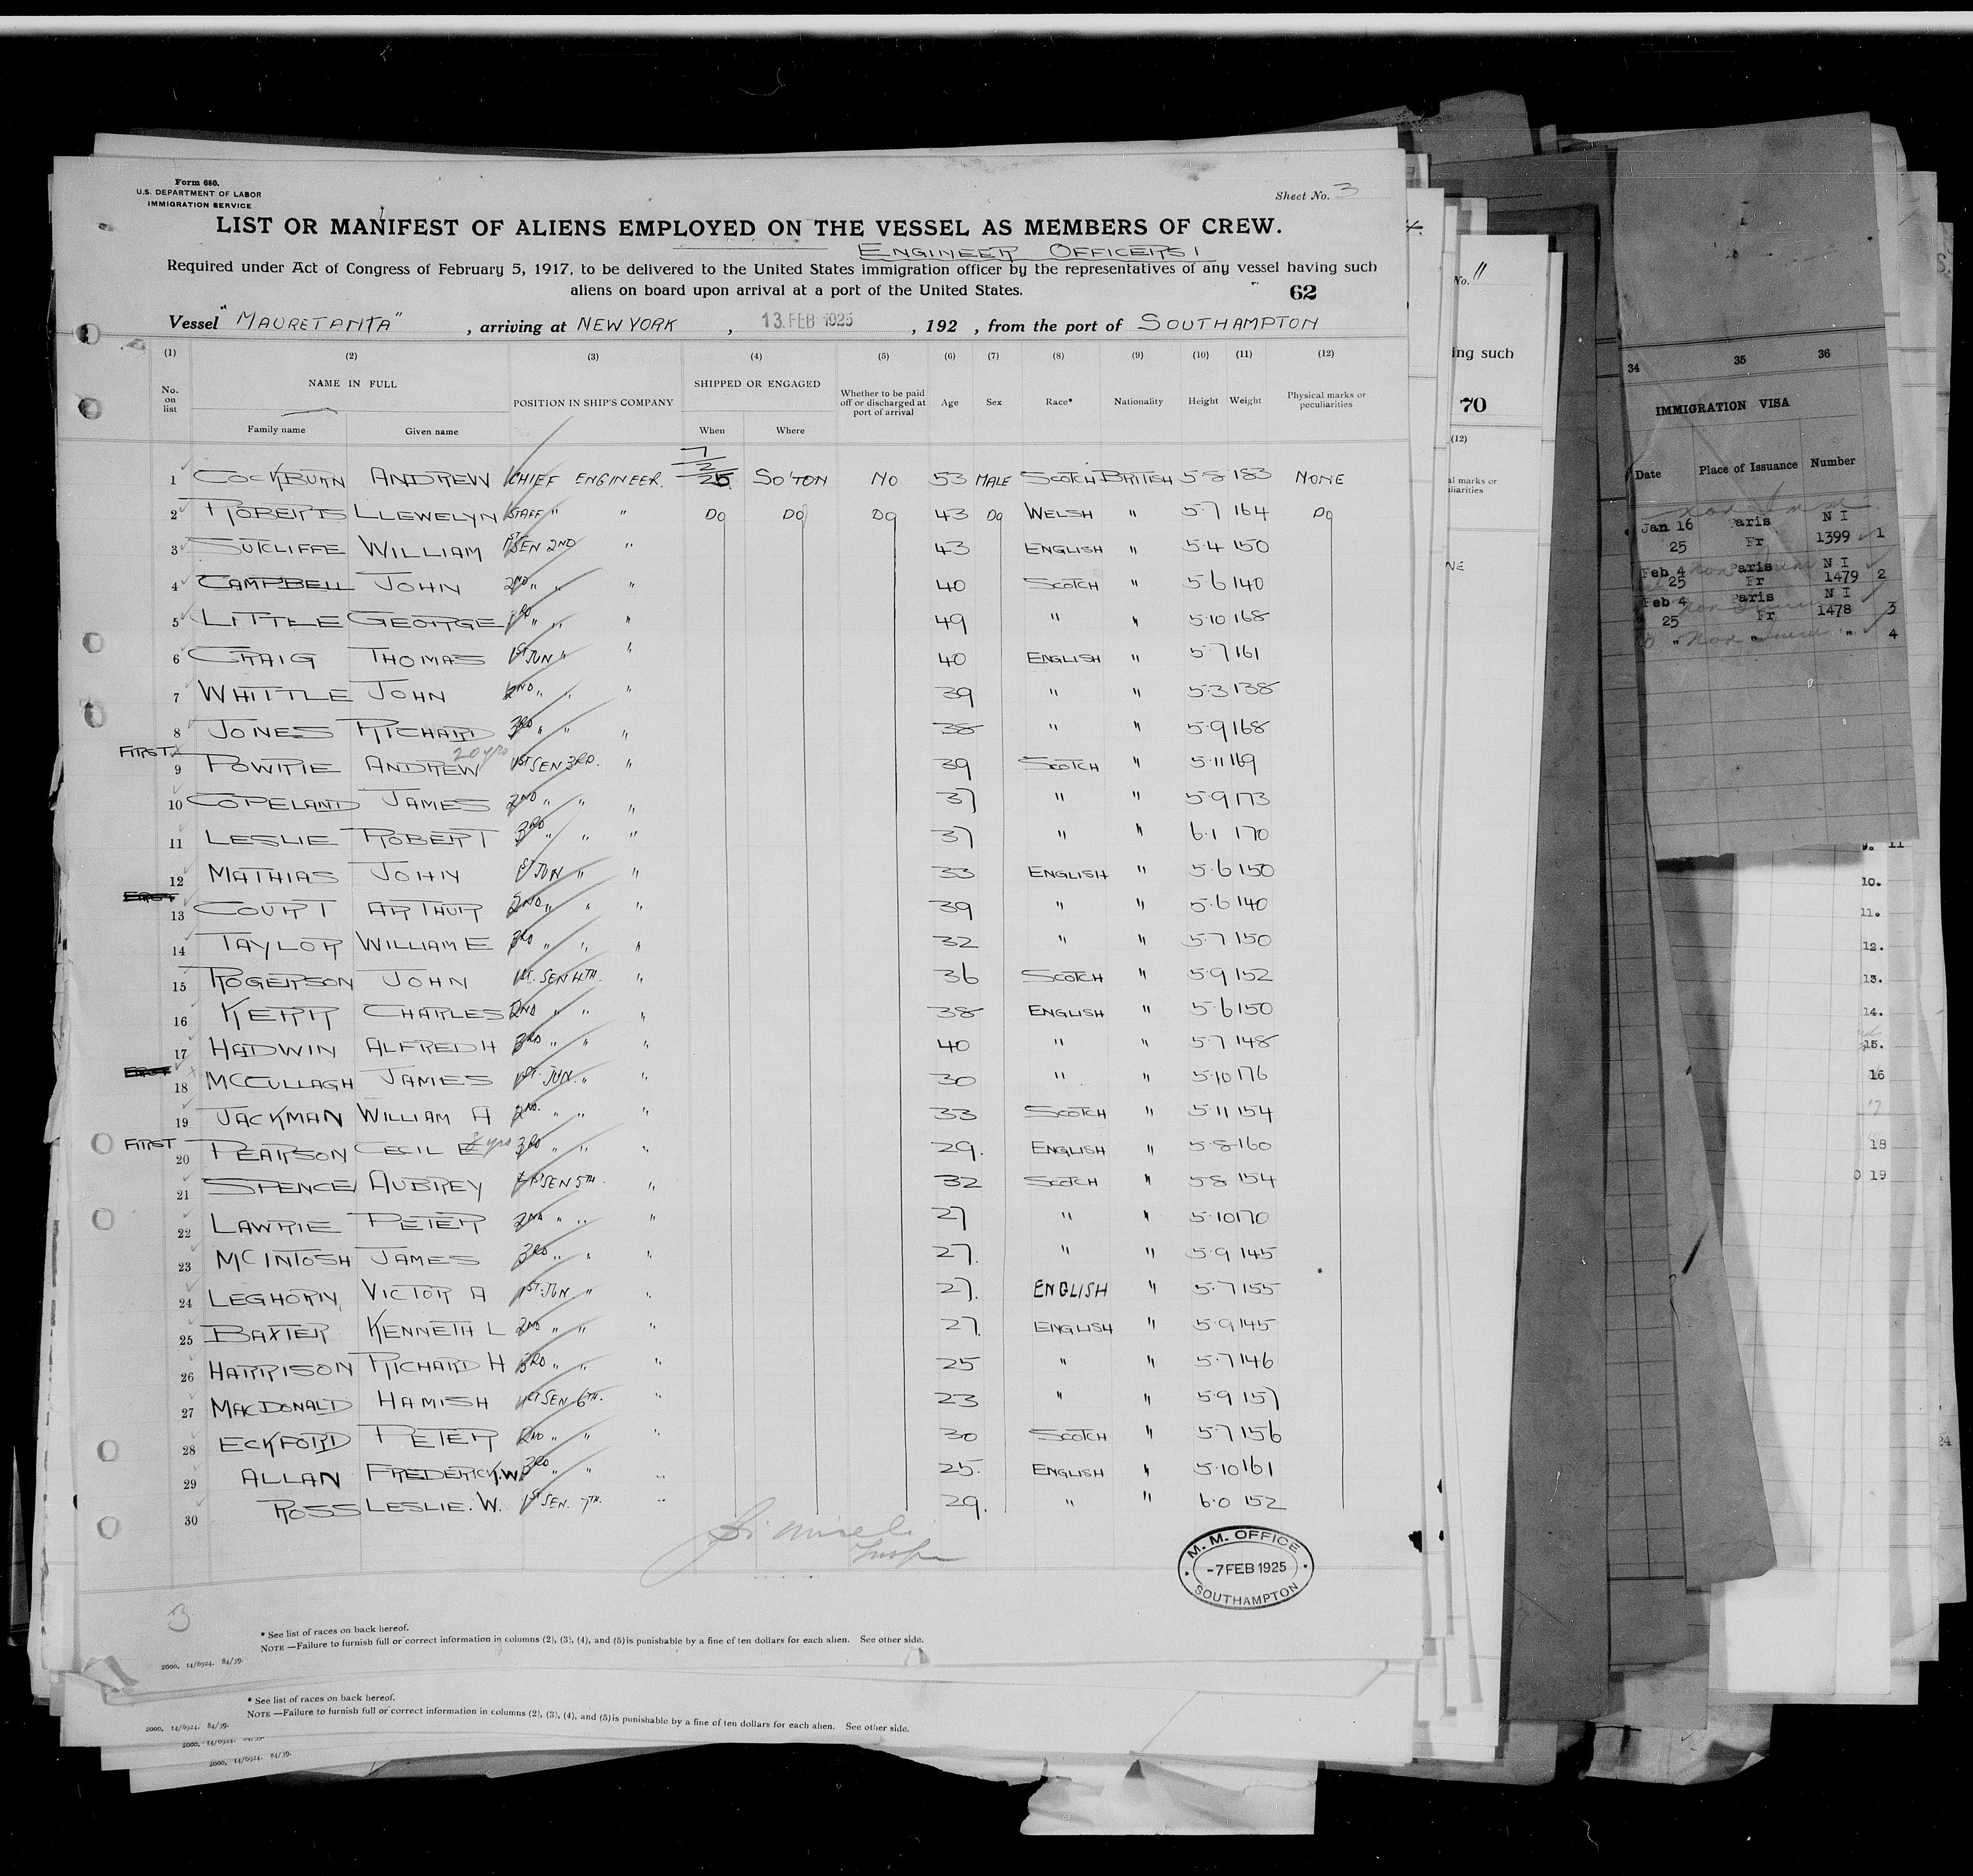 Form 680.
U.S. DEPARTMENT OF LABOR
IMMIGRATION SERVICE
Sheet No. 3
LIST OR MANIFEST OF ALIENS EMPLOYED ON THE VESSEL AS MEMBERS OF CREW.
ENGINEER OFFICERS
Required under Act of Congress of February 5, 1917, to be delivered to the United States immigration officer by the representatives of any vessel having such
aliens on board upon arrival at a port of the United States.
62
Vessel "MAURETANIA", arriving at NEW YORK, 13 FEB 1925, 192 , from the port of SOUTHAMPTON
(1) (2) (3) (4) (5) (6) (7) (8) (9) (10) (11) (12)
No. on list NAME IN FULL POSITION IN SHIP'S COMPANY SHIPPED OR ENGAGED Whether to be paid off or discharged at port of arrival Age Sex Race* Nationality Height Weight Physical marks or peculiarities
Family name Given name When Where
1 COCKBURN ANDREW CHIEF ENGINEER. 7/2/25 SO'TON NO 53 MALE SCOTCH BRITISH 5·8 183 NONE
2 ROBERTS LLEWELYN STAFF " " DO DO DO 43 DO WELSH " 5·7 164 DO
3 SUTCLIFFE WILLIAM 1ST SEN 2ND " 43 ENGLISH " 5·4 150
4 CAMPBELL JOHN 2ND " " " 40 SCOTCH " 5·6 140
5 LITTLE GEORGE 3RD " " " 49 " " 5·10 168
6 CRAIG THOMAS 1ST JUN " " 40 ENGLISH " 5·7 161
7 WHITTLE JOHN 2ND " " " 39 " " 5·3 138
8 JONES RICHARD 3RD " " " 38 " " 5·9 168
FIRST 20 yrs
9 POWRIE ANDREW 1ST SEN 3RD. " 39 SCOTCH " 5·11 169
10 COPELAND JAMES 2ND " " " 37 " " 5·9 173
11 LESLIE ROBERT 3RD " " " 37 " " 6·1 170
12 MATHIAS JOHN 1ST JUN " " 33 ENGLISH " 5·6 150
FIRST
13 COURT ARTHUR 2ND " " " 39 " " 5·6 140
14 TAYLOR WILLIAM E 3RD " " " 32 " " 5·7 150
15 ROGERSON JOHN 1ST. SEN 4TH. " 36 SCOTCH " 5·9 152
16 KERR CHARLES 2ND " " " 38 ENGLISH " 5·6 150
17 HADWIN ALFRED H 3RD " " " 40 " " 5·7 148
FIRST
18 MCCULLAGH JAMES 1ST JUN. " " 30 " " 5·10 176
19 JACKMAN WILLIAM A 2ND. " " " 33 SCOTCH " 5·11 154
FIRST
20 PEARSON CECIL E 8 yrs 3RD " " " 29. ENGLISH " 5·8 160
21 SPENCE AUBREY 1ST SEN 5TH. " 32 SCOTCH " 5·8 154
22 LAWRIE PETER 2ND " " " 27 " " 5·10 170
23 MCINTOSH JAMES 3RD " " " 27. " " 5·9 145
24 LEGHORN VICTOR A 1ST. JUN. " " 27. ENGLISH " 5·7 155
25 BAXTER KENNETH L 2ND " " " 27. ENGLISH " 5·9 145
26 HARRISON RICHARD H 3RD " " " 25 " " 5·7 146
27 MACDONALD HAMISH 1ST SEN 6TH. " 23 " " 5·9 157
28 ECKFORD PETER 2ND " " " 30 SCOTCH " 5·7 156
29 ALLAN FREDERICK.W. 3RD " " " 25. ENGLISH " 5·10 161
30 ROSS LESLIE. W. 1ST SEN. 7TH. " 29. " " 6·0 152
M. M. OFFICE
-7 FEB 1925
SOUTHAMPTON
3
* See list of races on back hereof.
NOTE —Failure to furnish full or correct information in columns (2), (3), (4), and (5) is punishable by a fine of ten dollars for each alien. See other side.
2000. 14/6924. 84/39.
* See list of races on back hereof.
NOTE —Failure to furnish full or correct information in columns (2), (3), (4), and (5) is punishable by a fine of ten dollars for each alien. See other side.
2000. 14/6924. 84/39.
2000. 14/6924. 84/39.
2000. 14/6924. 84/39.
No. 11
ing such
70
(12)
al marks or
liarities
NE
34 35 36
IMMIGRATION VISA
Date Place of Issuance Number
Jan 16 Paris N I
25 Fr 1399 1
Feb 4 Paris N I
25 Fr 1479 2
Feb 4 Paris N I
25 Fr 1478 3
" " " 4
9. 11
10.
11.
12.
13.
14.
15.
16
17
18
0 19
24